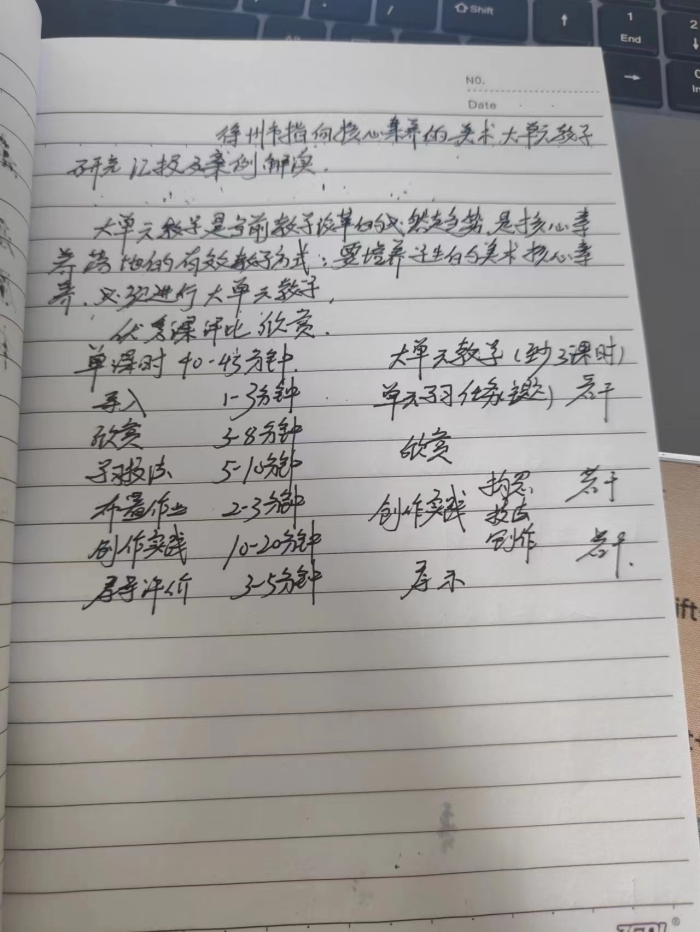 ⇧ Shift
1
End
2
NO.
Date
徐州市指向核心素养的美术大单元教学
研究汇报及案例解读.
大单元教学是当前教学改革的必然趋势,是核心素
养落地的有效教学方式;要培养学生的美术核心素
养,必须进行大单元教学,
优秀课评比欣赏.
单课时 40-45分钟. 大单元教学(至少3课时)
导入 1-3分钟 单元学习任务(课题) 若干
欣赏 3-8分钟 欣赏
学习技法 5-10分钟 构思 若干
布置作业 2-3分钟 创作实践 技法
创作实践 10-20分钟 创作 若干.
展示评价 3-5分钟 展示
ift